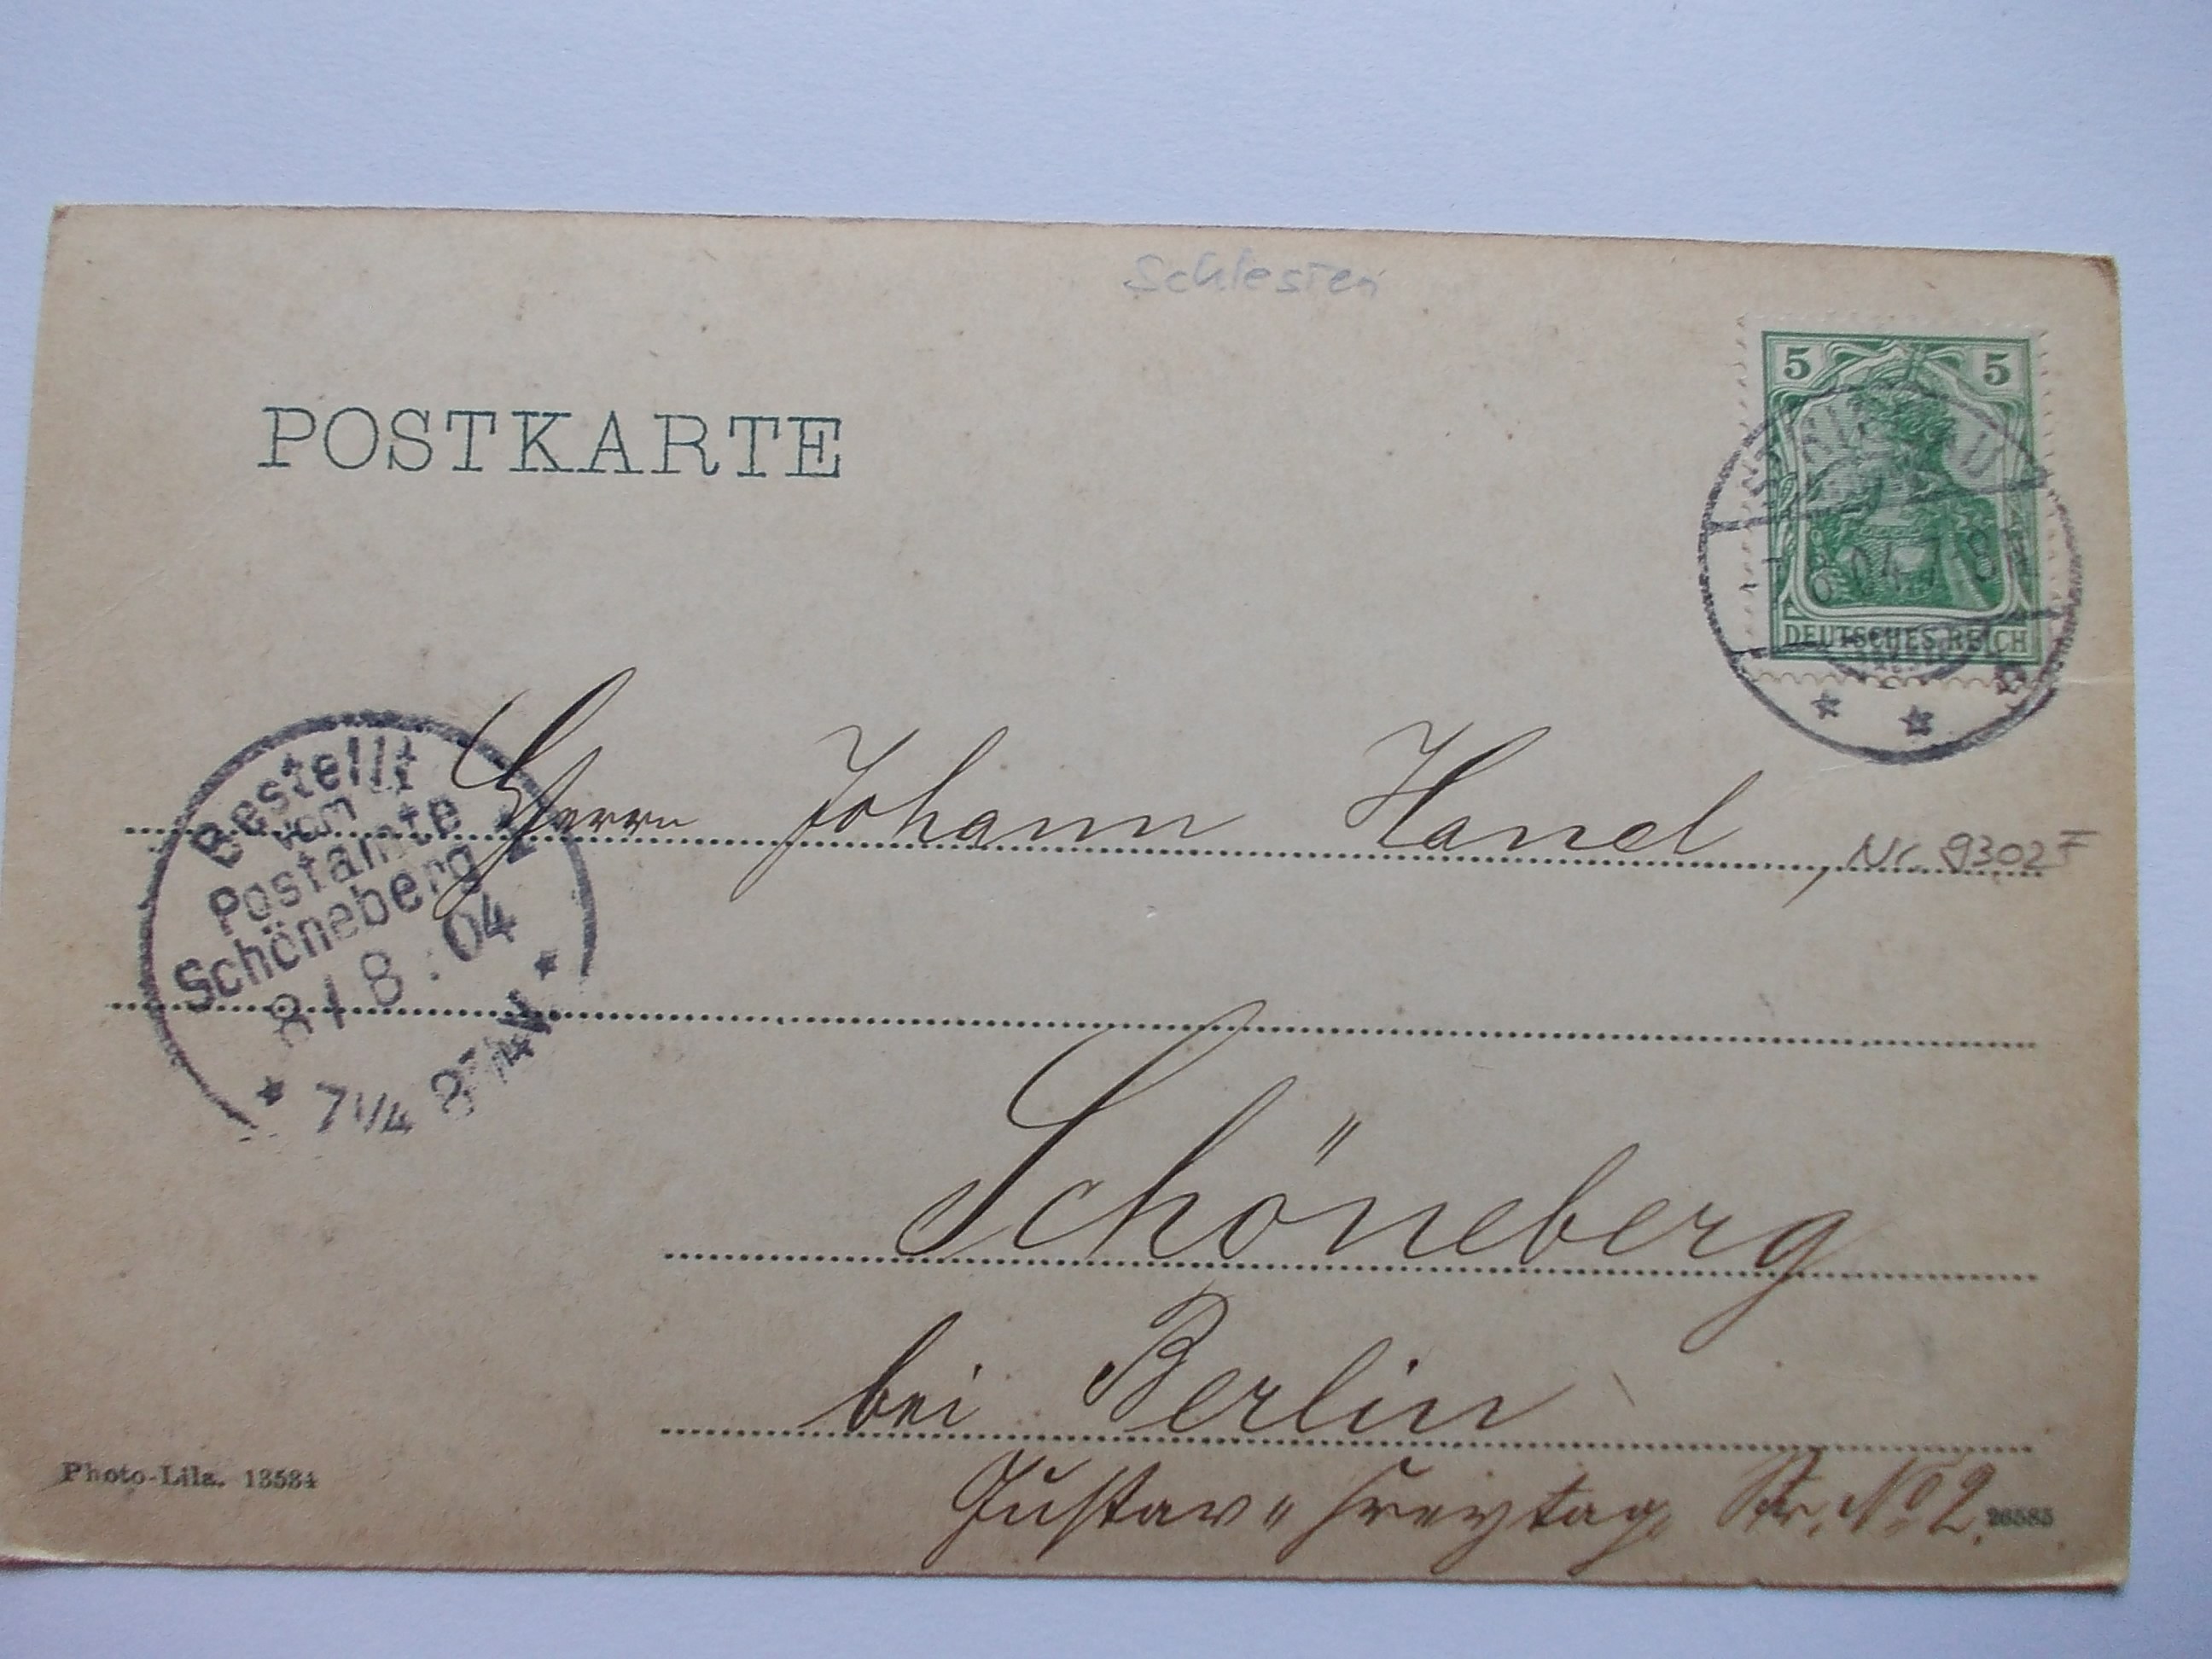 Schlesien
5 5
POSTKARTE
DEUTSCHES REICH
Herrn Johann Hanel,
Nr. 9302 F
Bestellt
vom
Postamte 2
Schöneberg
8/8.04
7 1/4 8 1/4 N.
Schöneberg
bei Berlin
Gustav "Freytag Str. No 2.
Photo-Lila. 13534
26585